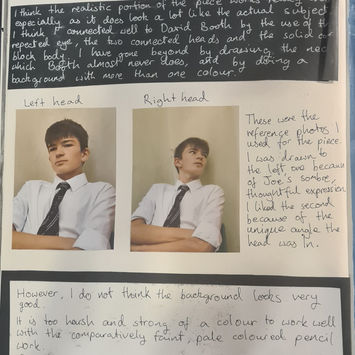 I think the realistic portion of the piece works really
especially as it does look a lot like the actual subject
I think I connected well to David Booth by the use of the
repeated eye, the two connected heads and the solid
block body. I have gone beyond by drawing the neck
which Booth almost never does, and by doing a
background with more than one colour.
Left head
Right head
These were the
reference photos I
used for the piece.
I was drawn to
the left one because
of Joe's sombre,
thoughtful expression
I liked the second
because of the
unique angle the
head was in.
However, I do not think the background looks very
good.
It is too harsh and strong of a colour to work well
with the comparatively faint, pale coloured pencil
work.